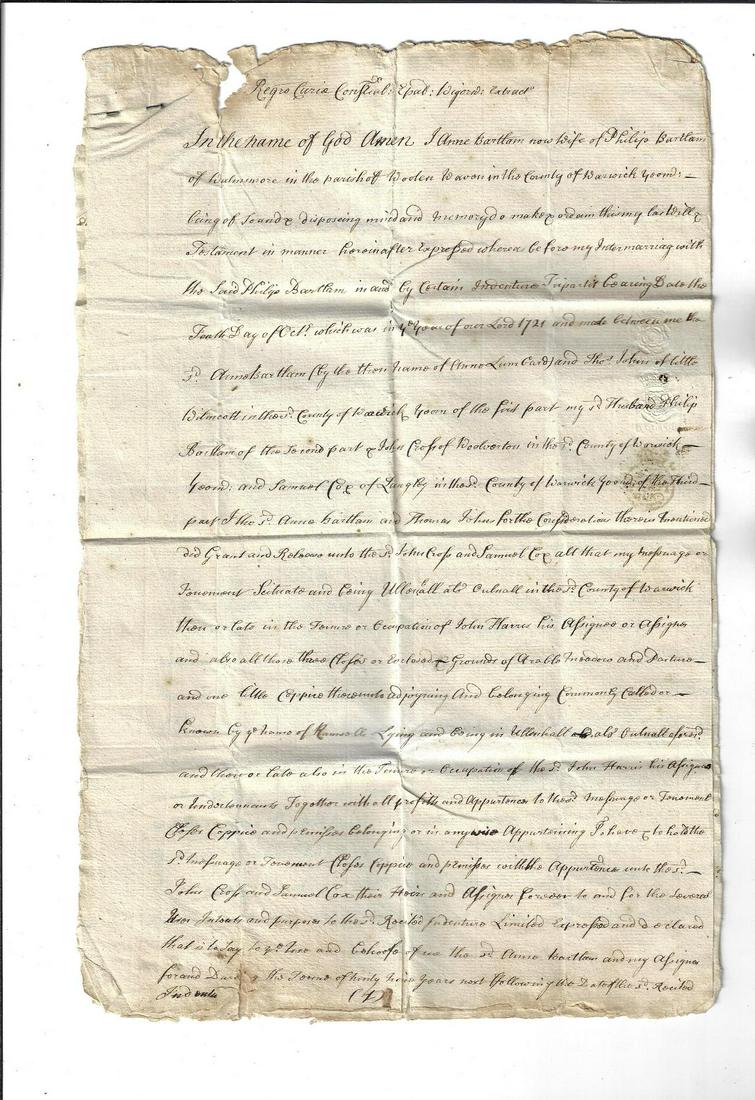 Regro Curiæ Consist: Epal: Wigorn: Extract
In the name of God Amen I Anne Bartlam now Wife of Philip Bartlam
of in the parish of Wooten Waven in the County of Warwick Yeom: –
being of Sound & disposing mind and memory do make & ordain this my last Will &
Testament in manner hereinafter Expressed whereas before my Intermarriag with
the Said Philip Bartlam in and by Certain Indenture Tripartit bearing Date the
Day of Octr. which was in ye Year of our Lord 1721 and made between me the
sd. Anne Bartlam (by the then name of Anne Lum Card) and Thos. Johns of little
Wilmcott in the sd. County of Warwick Yeom of the first part my sd. Husband Philip
Bartlam of the Second part & John Cross of Woolverton in the sd. County of Warwick –
Yeom: and Samuel Cox of Langley in the sd. County of Warwick Yeom: of the Third –
part I the sd. Anne Bartlam and Thomas Johns for the Considerations therein mentioned
did Grant and Release unto the sd. John Cross and Samuel Cox all that my Messuage or
Tenement Scituate and being Ullenhall als Oulnall in the sd. County of Warwick
then or late in the Tenure or Occupation of John Harris his Assignee or Assignes
and also all those three Closes or Enclosed Grounds of Arable Meadow and Pasture –
and one little Coppice thereunto adjoyning And belonging Commonly Called or –
known by ye name of Lying and being in Ullenhall als Oulnall aforesd.
and then or late also in the Tenure or Occupation of the sd. John Harris his Assignes
or Undertennants Together with all profitts and Appurtences to the sd Messuage or Tenement
Closes Coppice and premisses belonging or in any wise Appurteining To have & to hold the
sd. Messuage or Tenement Closes Coppice and premisses with the Appurtences unto the sd. –
John Cross and Samuel Cox their Heirs and Assignes forever to and for the Several
Uses Intents and purposes in the sd. Recited Indenture Limited Expressed and declared
that is to Say to ye Use and Behoofe of me the sd. Anne Bartlam and my Assignes
for and During the Terme of ninty nine Years next following the Date of the sd. Recited
Indenture (1)